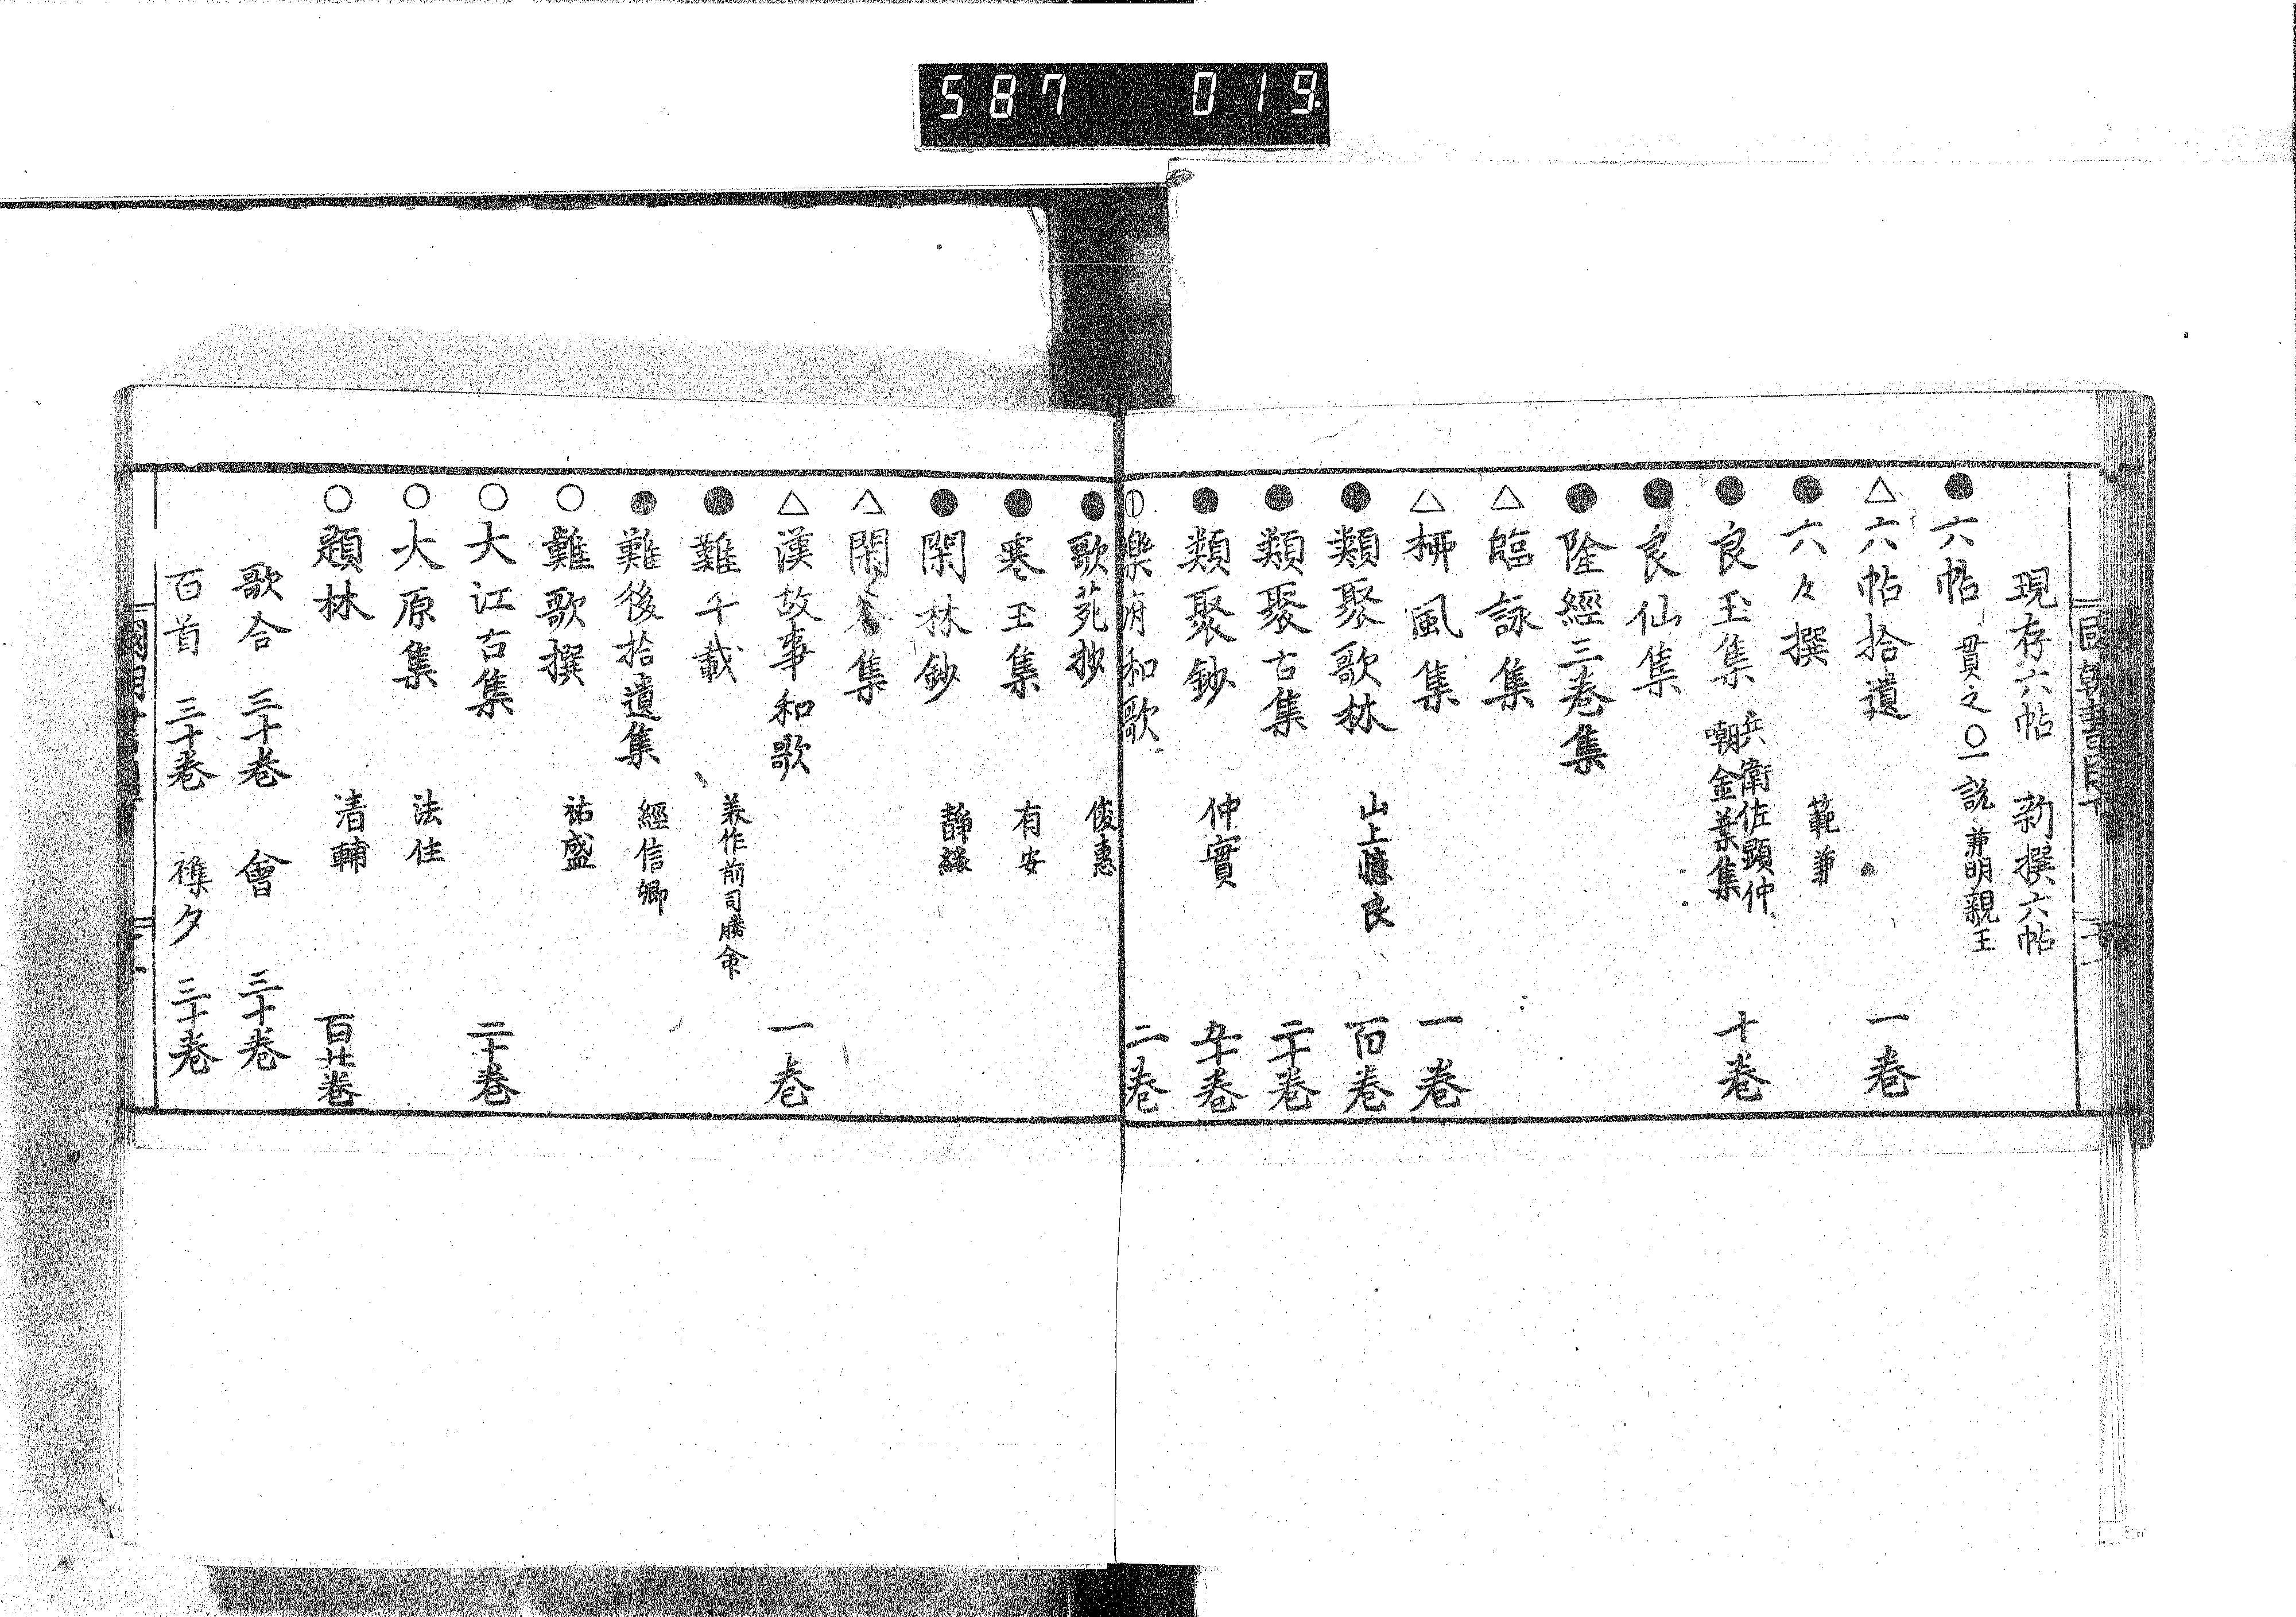 587 019
現存六帖 新撰六帖
●六帖 貫之〇一説兼明親王
△六帖拾遺 一巻
●六々撰 範兼
●良玉集 兵衛佐顕仲 嘲金葉集 十巻
●良仙集
●隆經三巻集
△臨詠集
△柳風集 一巻
●類聚歌林 山上憶良 百巻
●類聚古集 二十巻
●類聚鈔 仲實 五十巻
樂府和歌 二巻
●歌苑抄 俊惠
●寒玉集 有安
●閑林鈔 静縁
△閑 集
△漢故事和歌 一巻
●難千載 美作前司勝命
●難後拾遺集 經信卿
○難歌撰 祐盛
○大江古集 二十巻
○大原集 法住
○題林 清輔 百廿巻
歌合 三十巻 會 三十巻
百首 三十巻 襍夕 三十巻